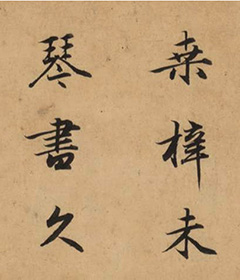 桒梓未
琴書久